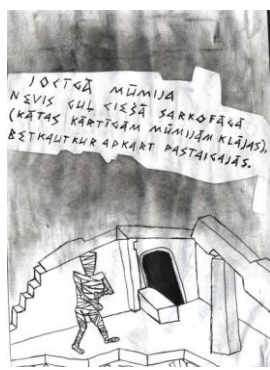 JOCĪGĀ MŪMIJA
NEVIS GUĻ CIEŠĀ SARKOFĀGĀ
(KĀ TAS KĀRTĪGĀM MŪMIJĀM KLĀJAS),
BET KAUT KUR APKĀRT PASTAIGĀJĀS.